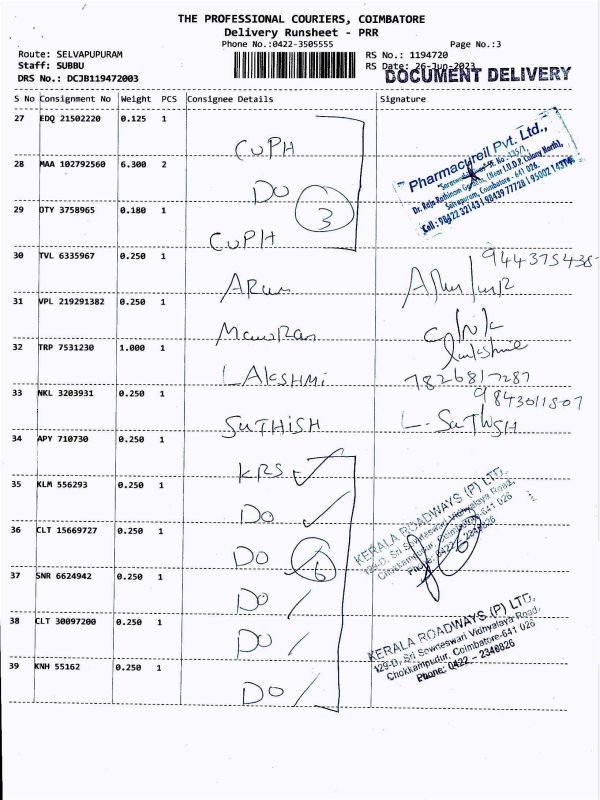 THE PROFESSIONAL COURIERS, COIMBATORE
Delivery Runsheet - PRR
Phone No.:0422-3505555 Page No.:3
Route: SELVAPUPURAM RS No.: 1194720
Staff: SUBBU RS Date: 26-Jun-2023
DRS No.: DCJB119472003 DOCUMENT DELIVERY
S No Consignment No Weight PCS Consignee Details Signature
27 EDQ 21502220 0.125 1
CUPH
Pharmacureil Pvt. Ltd.,
Dr. Raja Rathinam Garden, (Near I.U.D.P. Colony North),
Selvapuram, Coimbatore - 641 026.
Cell : 98422 32143 | 98439 77728 | 95002 14374
28 MAA 102792560 6.300 2
DO
3
29 OTY 3758965 0.180 1
CUPH
30 TVL 6335967 0.250 1
ARUN
9443754385
31 VPL 219291382 0.250 1
ManoRan
32 TRP 7531230 1.000 1
LAKSHMI
lakshmie
7826817287
33 NKL 3203931 0.250 1
SUTHISH
9843011807
L. SUTHISH
34 APY 710730 0.250 1
KRS
35 KLM 556293 0.250 1
DO
KERALA ROADWAYS (P) LTD.
129-D, Sri Sowneswari Vidhyalaya Road,
Chokkampudur, Coimbatore-641 026
Phone: 0422 - 2346826
36 CLT 15669727 0.250 1
DO
6
6
37 SNR 6624942 0.250 1
DO
38 CLT 30097200 0.250 1
DO
KERALA ROADWAYS (P) LTD.
129-D, Sri Sowneswari Vidhyalaya Road,
Chokkampudur, Coimbatore-641 026
Phone: 0422 - 2346826
39 KNH 55162 0.250 1
DO